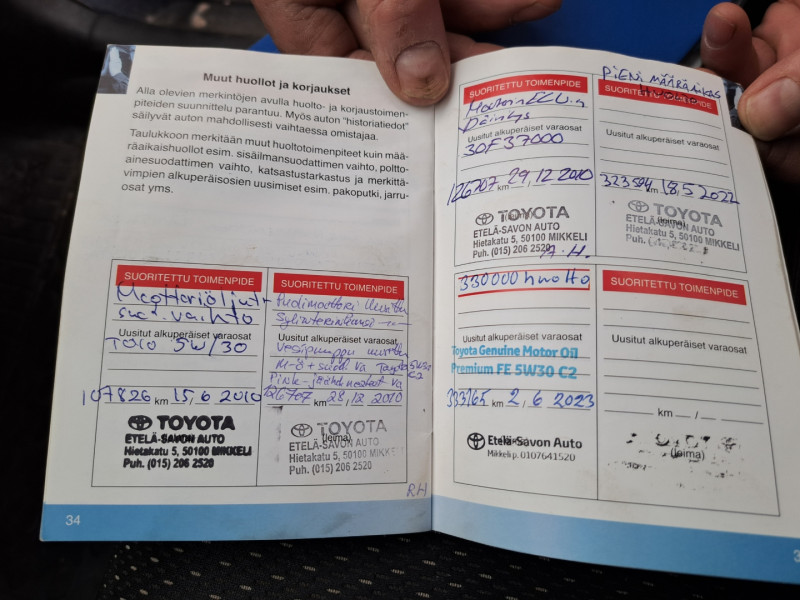 Muut huollot ja korjaukset
Alla olevien merkintöjen avulla huolto- ja korjaustoimen-
piteiden suunnittelu parantuu. Myös auton "historiatiedot"
säilyvät auton mahdollisesti vaihtaessa omistajaa.
Taulukkoon merkitään muut huoltotoimenpiteet kuin mää-
räaikaishuollot esim. sisäilmansuodattimen vaihto, poltto-
ainesuodattimen vaihto, katsastustarkastus ja merkittä-
vimpien alkuperäisosien uusimiset esim. pakoputki, jarru-
osat yms.
SUORITETTU TOIMENPIDE
Moottoriöljyt+
suod. vaihto
Uusitut alkuperäiset varaosat
Toyo 5W/30
107826 km 15,6 2010
TOYOTA
ETELÄ-SAVON AUTO
Hietakatu 5, 50100 MIKKELI
Puh. (015) 206 2520
SUORITETTU TOIMENPIDE
Sylinterinkansi
Uusitut alkuperäiset varaosat
Vesipumppu uusittu
126707 km 28,12 2010
TOYOTA
(leima)
ETELÄ-SAVON AUTO
Hietakatu 5, 50100 MIKKELI
Puh. (015) 206 2520
R.H
34
SUORITETTU TOIMENPIDE
Moottorin ECU:n
Päivitys
Uusitut alkuperäiset varaosat
30F37000
126707 km 29,12 2010
TOYOTA
(leima)
ETELÄ-SAVON AUTO
Hietakatu 5, 50100 MIKKELI
Puh. (015) 206 2520
A.H.
PIENI MÄÄRÄAIKAS
HUOLTO
SUORITETTU TOIMENPIDE
Uusitut alkuperäiset varaosat
323594 km 18,5 2022
TOYOTA
(leima)
ETELÄ-SAVON AUTO
Hietakatu 5, 50100 MIKKELI
330000 huolto
Uusitut alkuperäiset varaosat
Toyota Genuine Motor Oil
Premium FE 5W30 C2
333165 km 2,6 2023
Etelä-Savon Auto
Mikkeli p. 0107641520
SUORITETTU TOIMENPIDE
Uusitut alkuperäiset varaosat
km / -
(leima)